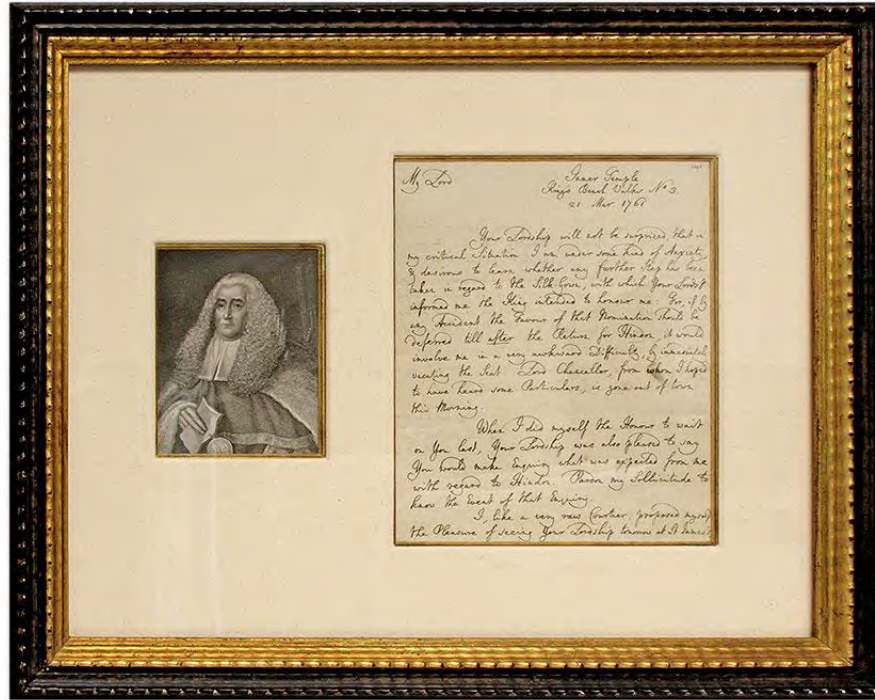 My Lord
Inner Temple
King's Bench Walks No 3.
21 Mar 1761
Your Lordship will not be surprized, that in
my critical Situation I am under some kind of Anxiety,
& desirous to learn whether any further Step has been
taken in regard to the Silk-Gown, with which Your Lordsp
informed me the King intended to honour me: For, if by
any Accident the Favour of that Nomination should be
deferred till after the Return for Hindon, it would
involve me in a very awkward Difficulty, by immediately
vacating the Seat. Lord Chancellor, from whom I hoped
to have heard some Particulars, is gone out of town
this Morning.
When I did myself the Honour to wait
on You last, Your Lordship was also pleased to say
You would make Enquiry what was expected from me
with regard to Hindon. Pardon my Sollicitude to
know the Event of that Enquiry.
I, like a very raw Courtier, proposed myself
the Pleasure of seeing Your Lordship tomorrow at St James's